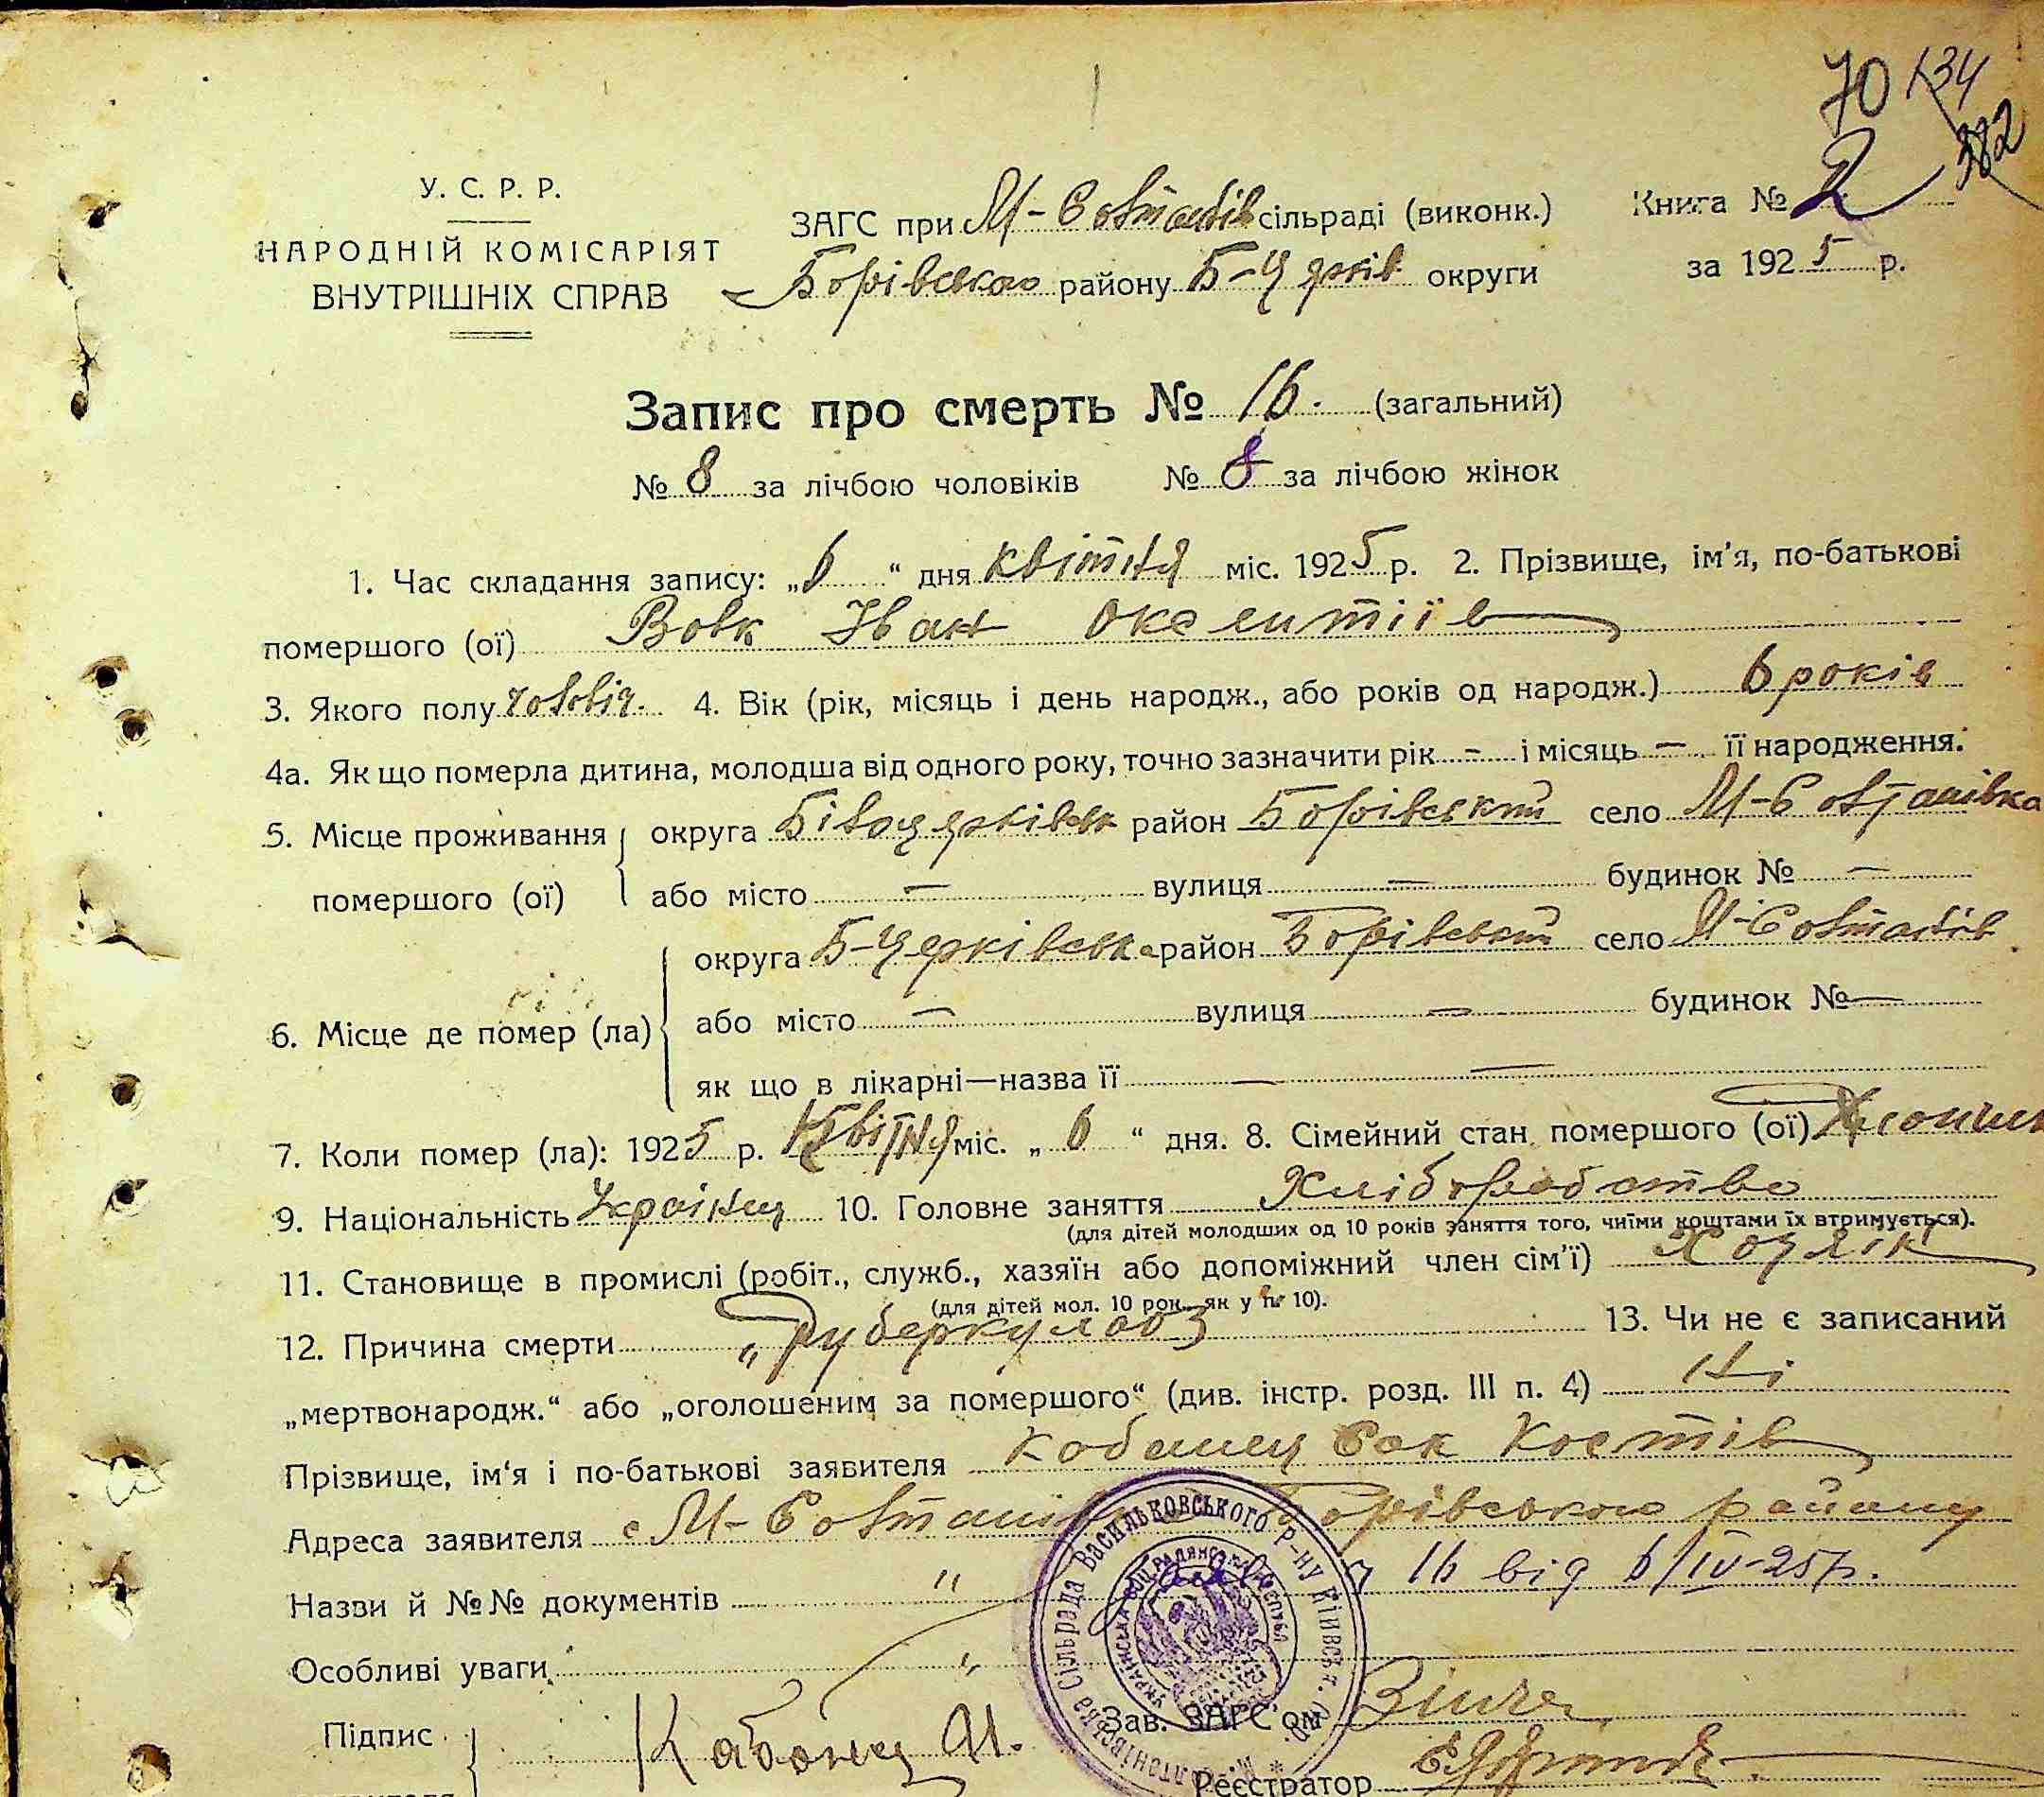 70 134
382
У. С. Р. Р.
НАРОДНІЙ КОМІСАРІЯТ
ВНУТРІШНІХ СПРАВ
ЗАГС при М-Солтанів сільраді (виконк.)
Борівського району Б-Церків округи
Книга № 2
за 1925 р.
Запис про смерть № 16. (загальний)
№ 8 за лічбою чоловіків № 8 за лічбою жінок
1. Час складання запису: „6“ дня квітня міс. 1925 р. 2. Прізвище, ім'я, по-батькові
помершого (ої) Вовк Іван Оксентіїв
3. Якого полу чоловіч. 4. Вік (рік, місяць і день народж., або років од народж.) 6 років
4а. Як що померла дитина, молодша від одного року, точно зазначити рік - і місяць - її народження.
5. Місце проживання округа Білоцерківськ район Борівський село М-Солтанівка
помершого (ої) або місто — вулиця — будинок № —
округа Б-Церківська район Борівський село М-Солтанів
6. Місце де помер (ла) або місто — вулиця — будинок № —
як що в лікарні—назва її — —
7. Коли помер (ла): 1925 р. Квітня міс. „6“ дня. 8. Сімейний стан помершого (ої)
9. Національність Українец 10. Головне заняття Хліборобство
(для дітей молодших од 10 років заняття того, чиїми коштами їх втримується).
11. Становище в промислі (робіт., служб., хазяїн або допоміжний член сім'ї)
(для дітей мол. 10 рок. як у п. 10).
12. Причина смерти „Туберкульоз 13. Чи не є записаний
„мертвонародж.“ або „оголошеним за помершого“ (див. інстр. розд. III п. 4) Ні
Прізвище, ім'я і по-батькові заявителя Кабанец Сак Костів
Адреса заявителя с М-Солтанів Борівського району
Назви й №№ документів " 16 від 6/IV-25р.
Особливі уваги "
Підпис Кабанец
Зав. ЗАГС'ом
Реєстратор
Сільрада Васильковського р-ну Київськ.